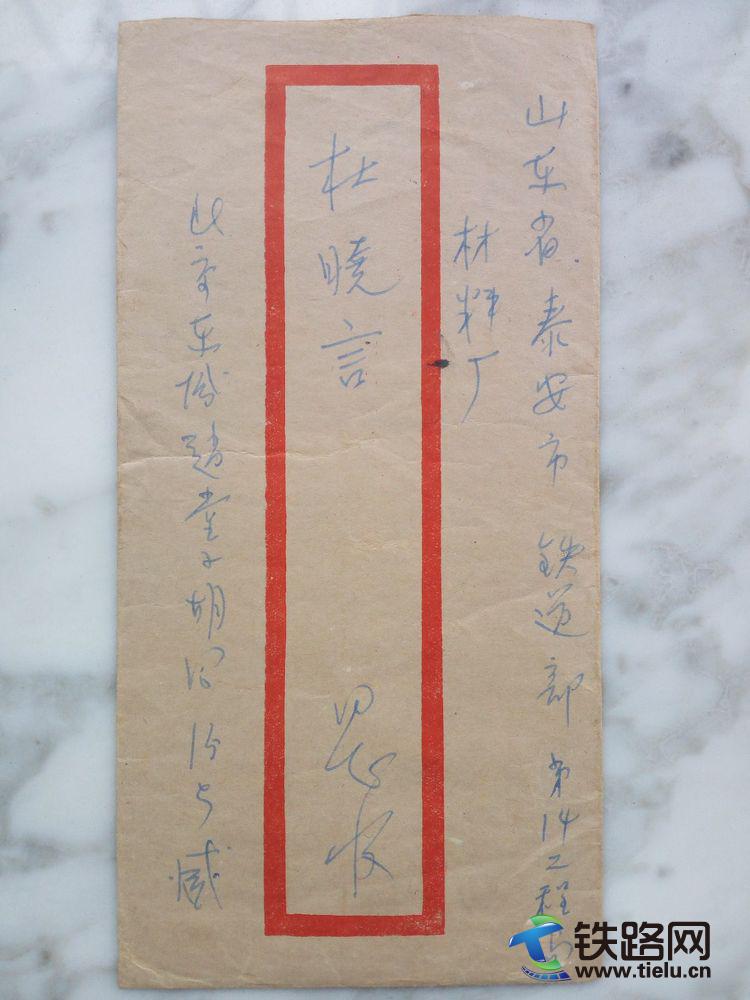 山东省泰安市 铁道部第14工程局
材料厂
杜晓言 同志收
北京东城赵堂子胡同15号臧
铁路网
www.tielu.cn